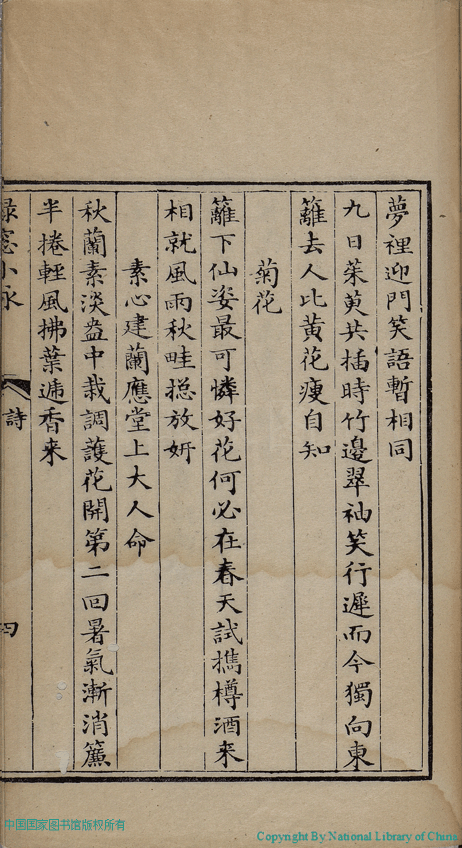 夢裡迎門笑語暫相同
九日茱萸共插時竹邊翠袖笑行遲而今獨向東
籬去人比黃花瘦自知
菊花
籬下仙姿最可憐好花何必在春天試攜樽酒来
相就風雨秋畦揔放妍
素心建蘭應堂上大人命
秋蘭素淡盎中栽調護花開第二回暑氣漸消簾
半捲輕風拂葉遞香来
窓小詠
詩
四
中国国家图书馆版权所有
Copyright By National Library of China